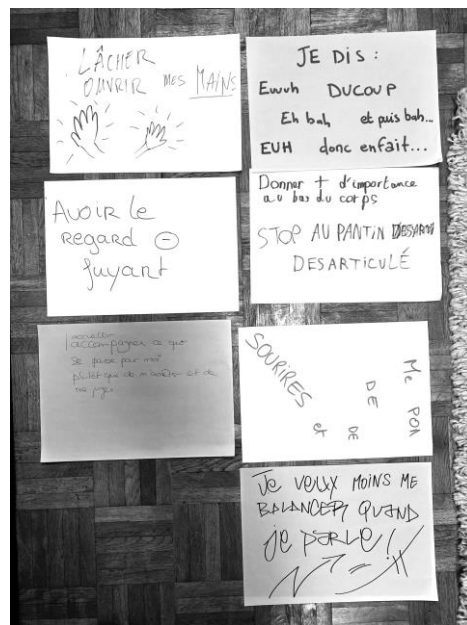 LÂCHER
OUVRIR MES MAINS
JE DIS :
Euuh DUCOUP
Eh bah, et puis bah...
EUH donc enfait...
AVOIR le
regard ⊖
fuyant
Donner + d'importance
au bas du corps
STOP AU PANTIN
DESARTICULÉ
accompagner ce que
se passe par moi
plutôt que de m'arrêter et de
me juger
SOURIRES
et
DE
DE
Me
Je veux MOINS ME
BALANCER QUAND
je PARLE !